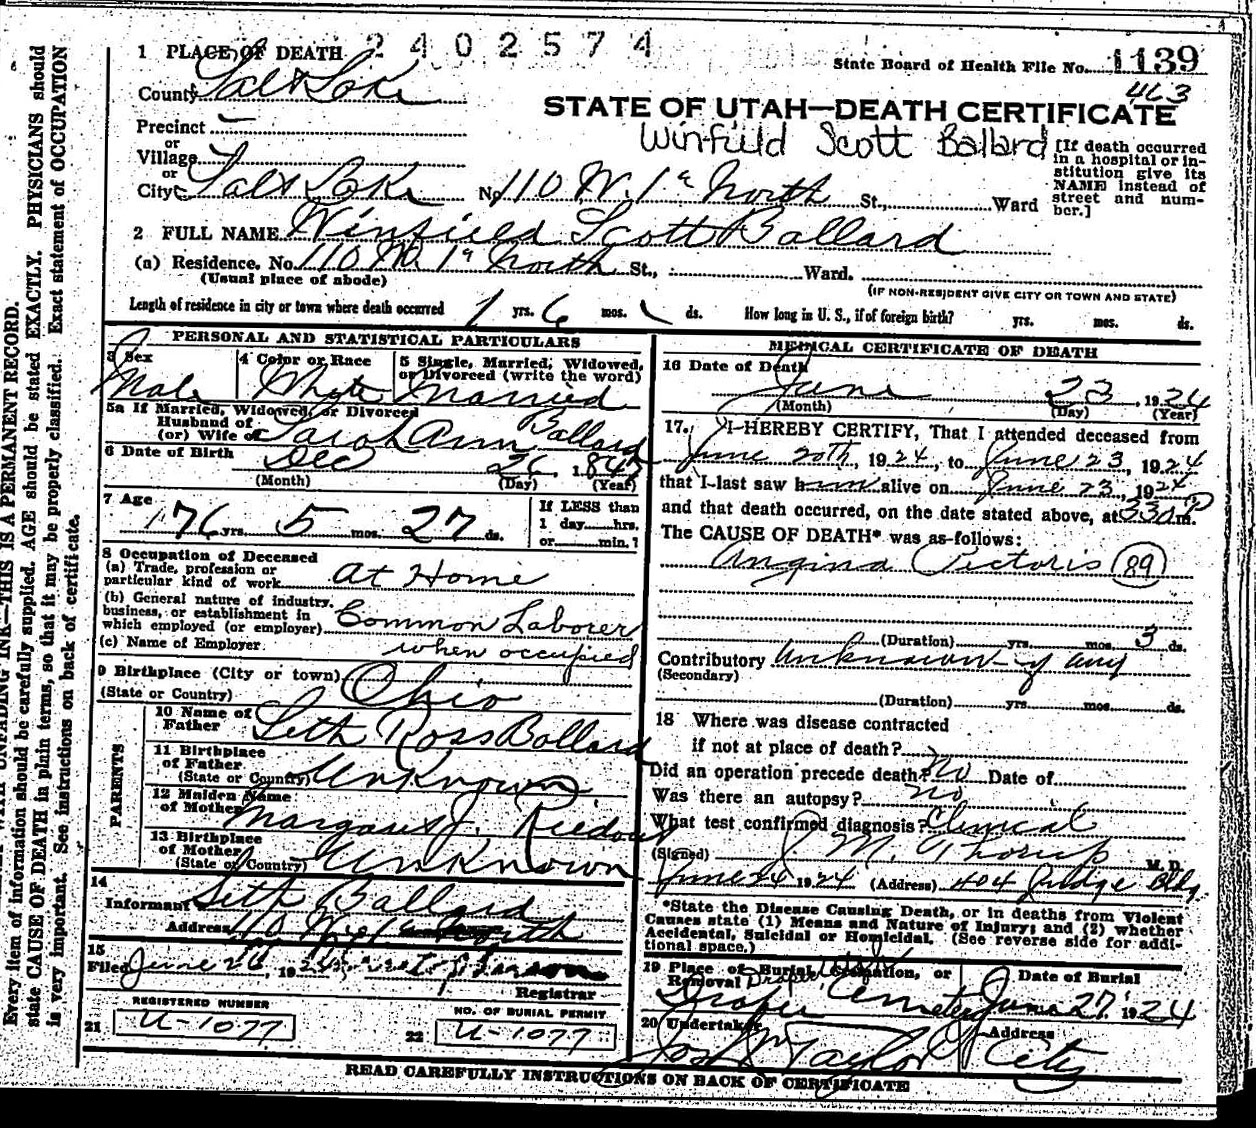 2402574
1 PLACE OF DEATH
State Board of Health File No. 1139
463
County Salt Lake
STATE OF UTAH—DEATH CERTIFICATE
Winfield Scott Ballard
Precinct —
or
Village
or
City Salt Lake No. 110 W. 1st North St., Ward
[If death occurred in a hospital or institution give its NAME instead of street and number.]
2 FULL NAME Winfield Scott Ballard
(a) Residence. No. 110 W. 1st North St., Ward.
(Usual place of abode)
(IF NON-RESIDENT GIVE CITY OR TOWN AND STATE)
Length of residence in city or town where death occurred 1 yrs. 6 mos. ds. How long in U. S., if of foreign birth? yrs. mos. ds.
PERSONAL AND STATISTICAL PARTICULARS
3 Sex Male
4 Color or Race White
5 Single, Married, Widowed, or Divorced (write the word) Married
5a If Married, Widowed, or Divorced
Husband of
(or) Wife of Sarah Ann Ballard
6 Date of Birth Dec 26, 184
(Month) (Day) (Year)
7 Age 76 yrs. 5 mos. 27 ds.
If LESS than
1 day hrs.
or min.?
8 Occupation of Deceased
(a) Trade, profession or
particular kind of work At Home
(b) General nature of industry,
business, or establishment in
which employed (or employer) Common Laborer
(c) Name of Employer when occupied
9 Birthplace (City or town)
(State or Country) Ohio
PARENTS
10 Name of
Father Seth Ross Ballard
11 Birthplace
of Father
(State or Country) Unknown
12 Maiden Name
of Mother J.
13 Birthplace
of Mother
(State or Country) Unknown
14
Informant Seth Ballard
Address 110 W 1st North
15
Filed June 26, 1924
Registrar
REGISTERED NUMBER
21 U-1077
NO. OF BURIAL PERMIT
22 U-1077
MEDICAL CERTIFICATE OF DEATH
16 Date of Death
June 23, 1924
(Month) (Day) (Year)
17. I HEREBY CERTIFY, That I attended deceased from
June 20th, 1924, to June 23, 1924
that I last saw him alive on June 23, 1924
and that death occurred, on the date stated above, at 330 P m.
The CAUSE OF DEATH* was as follows:
Angina Pectoris 89
(Duration) yrs. mos. 3 ds.
Contributory Unknown if any
(Secondary)
(Duration) yrs. mos. ds.
18 Where was disease contracted
if not at place of death?
Did an operation precede death? No Date of
Was there an autopsy? no
What test confirmed diagnosis? Clinical
(Signed) J. M. Thorup M. D.
June 24 1924 (Address) 404 Judge Bldg.
*State the Disease Causing Death, or in deaths from Violent
Causes state (1) Means and Nature of Injury; and (2) whether
Accidental, Suicidal or Homicidal. (See reverse side for addi-
tional space.)
19 Place of Burial, Cremation, or
Removal Draper Utah
Draper Cemetery
Date of Burial
June 27, 1924
20 Undertaker
Jos Wm Taylor
Address
City
READ CAREFULLY INSTRUCTIONS ON BACK OF CERTIFICATE
UNFADING INK—THIS IS A PERMANENT RECORD.
Every item of information should be carefully supplied. AGE should be stated EXACTLY. PHYSICIANS should
state CAUSE OF DEATH in plain terms, so that it may be properly classified. Exact statement of OCCUPATION
is very important. See instructions on back of certificate.